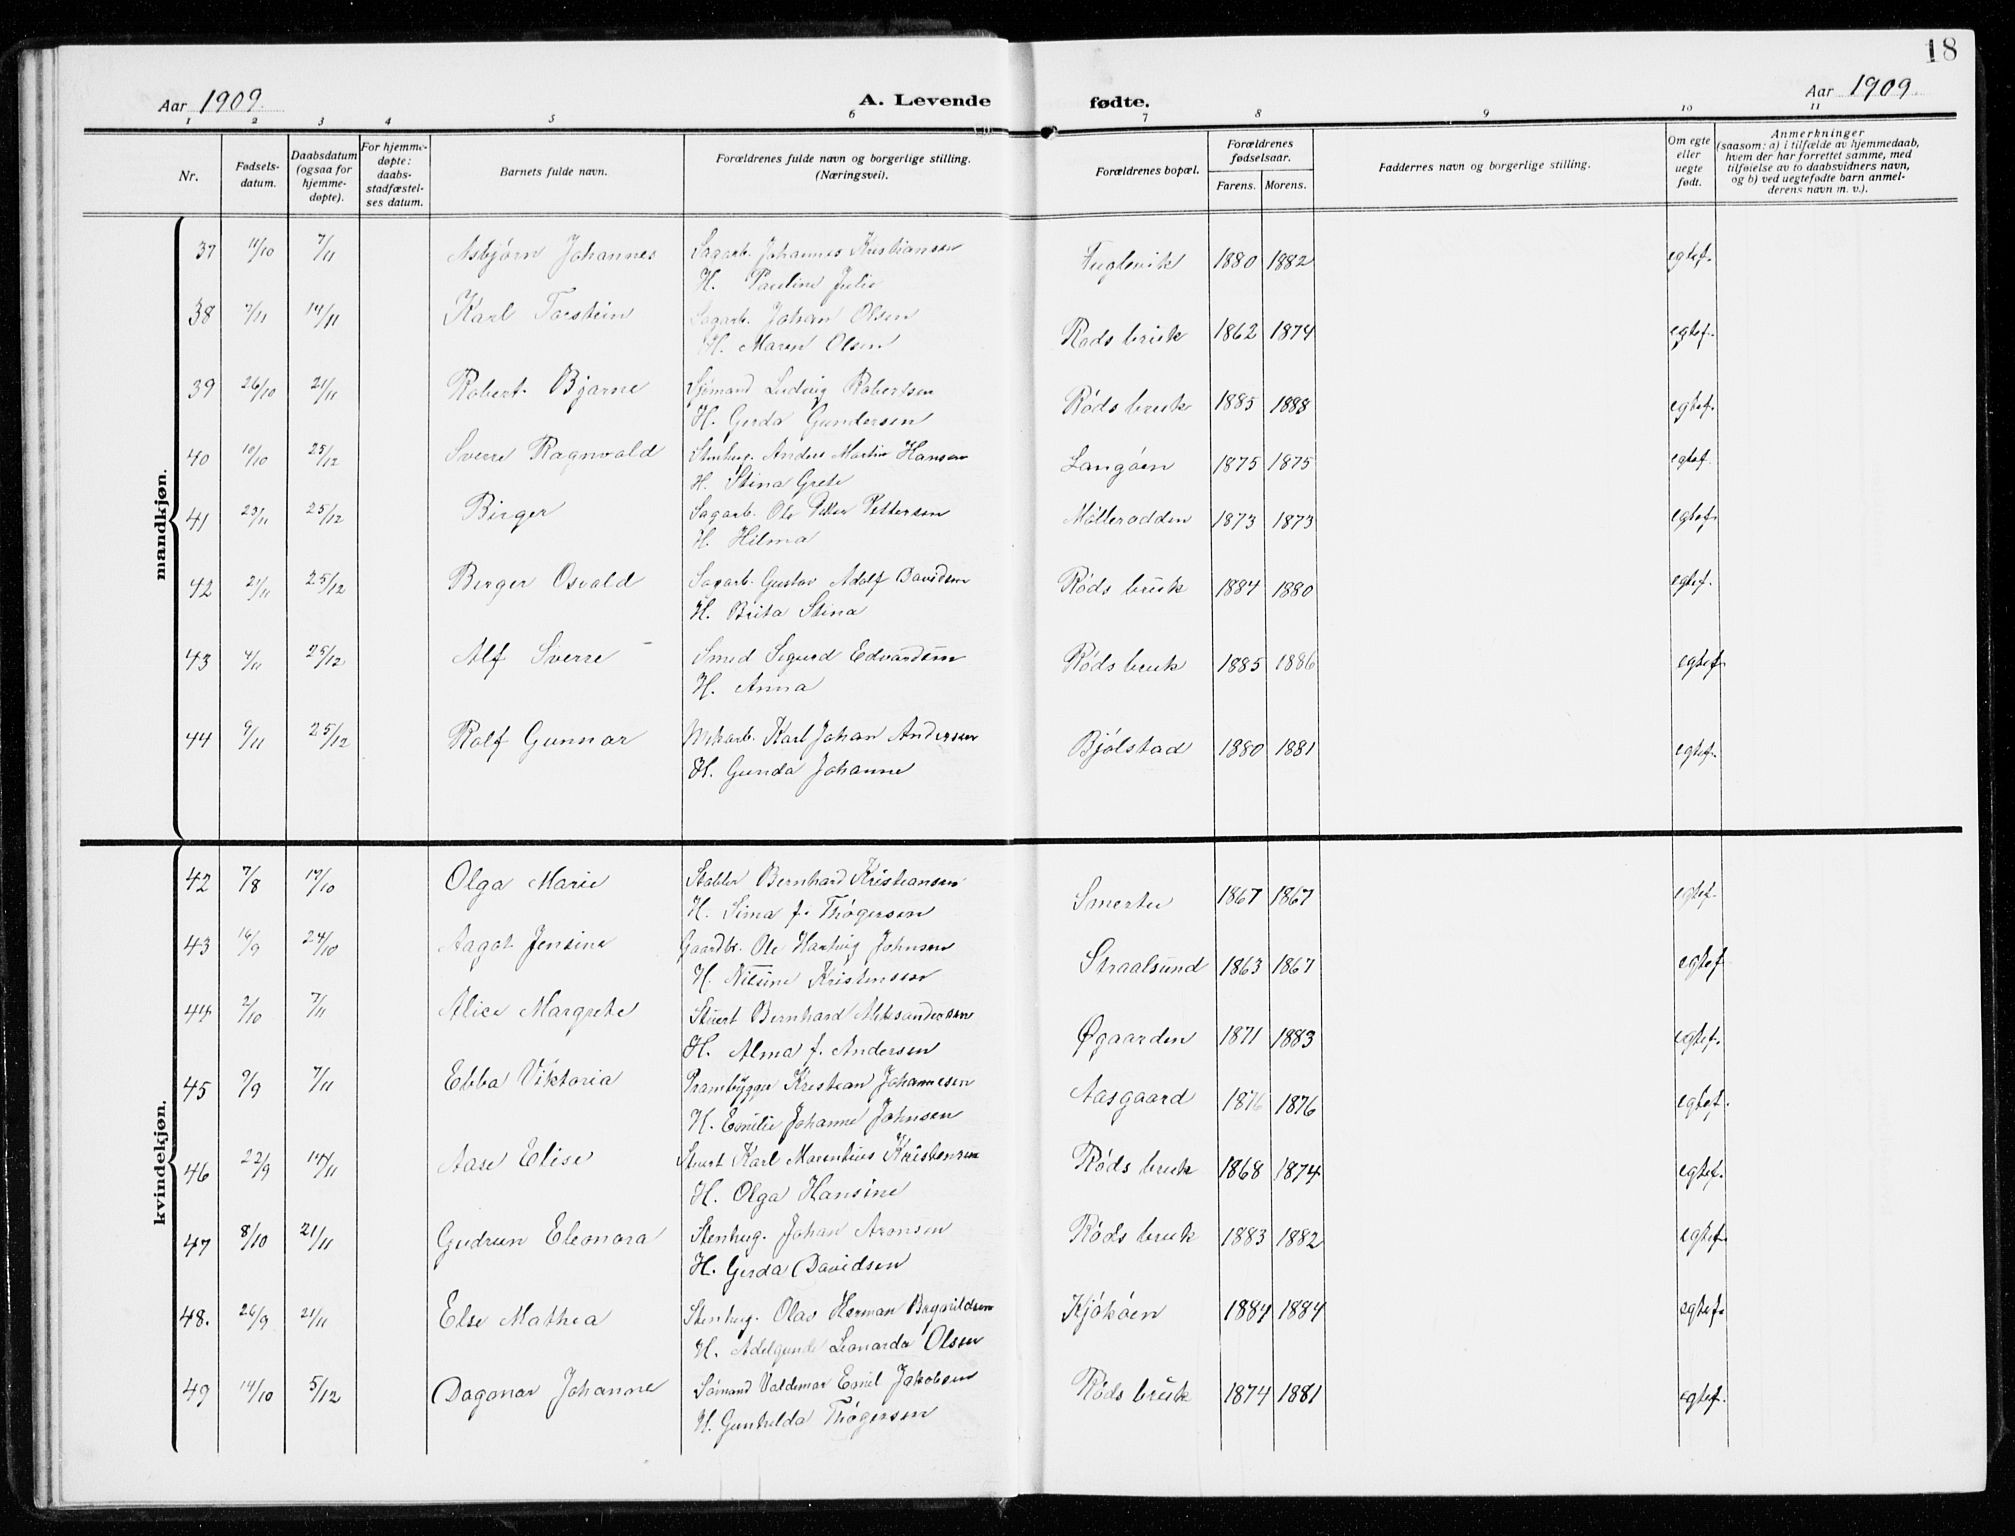 18
Aar 1909.
A. Levende fødte.
Aar 1909
1 2 3 4 5 6 7 8 9 10 11
Nr.
Fødsels-
datum.
Daabsdatum
(ogsaa for
hjemme-
døpte).
For hjemme-
døpte:
daabs-
stadfæstel-
ses datum.
Barnets fulde navn.
Forældrenes fulde navn og borgerlige stilling.
(Næringsvei).
Forældrenes bopæl.
Forældrenes
fødselsaar.
Farens. Morens.
Fadderres navn og borgerlige stilling.
Om egte
eller
uegte
født.
Anmerkninger
(saasom: a) i tilfælde av hjemmedaab,
hvem der har forrettet samme, med
tilføielse av to daabsvidners navn,
og b) ved uegtefødte barn anmel-
derens navn m. v.).
mandkjøn.
37 11/10 7/11 Asbjørn Johannes Sagarb. Johannes Kristiansen Fuglevik 1880 1882 egtef.
H. Pauline Julie
38 7/11 14/11 Karl Torstein Sagarb. Johan Olsen Røds bruk 1862 1874 egtef.
H. Maren Olsen
39 26/10 21/11 Robert Bjarne Sjømand Ludvig Robertsen Røds bruk 1885 1888 egtef.
H. Gerda Gundersen
40 10/10 25/12 Sverre Ragnvald Stenhug. Anders Martin Hansen Langøen 1875 1875 egtef.
H. Stina Grete
41 23/11 25/12 Birger Sagarb. Ole Peter Pettersen Møllerodden 1873 1873 egtef.
H. Hilma
42 21/11 25/12 Berger Osvald Sagarb. Gustav Adolf Davidsen Røds bruk 1884 1880 egtef.
H. Brita Stina
43 4/11 25/12 Alf Sverre Smed Sigurd Edvardsen Røds bruk 1885 1886 egtef.
H. Anna
44 9/11 25/12 Rolf Gunnar Karl Johan Andersen Bjølstad 1880 1881 egtef.
H. Gunda Johanne
kvindekjøn.
42 7/8 /10 Olga Marie Stabler Bernhard Kristiansen Smertu 1867 1867 egtef.
H. Sima f. Thøgersen
43 16/9 24/10 Aagot Jensine Gaardbr. Ole Hartvig Johnsen Straalsund 1863 1867 egtef
H. Nilsine Kristensen
44 2/10 7/11 Alice Margrete Stuert Bernhard Aleksandersen Øgaarden 1871 1883 egtef.
H. Alma f. Andersen
45 9/9 7/11 Ebba Viktoria Prambygger Kristian Johannesen Aasgaard 1876 1876 egtef.
H. Emilie Johanne Johnsen
46 22/9 14/11 Aase Elise Stuert Karl Marentius Kristensen Røds bruk 1868 1874 egtef.
H. Olga Hansine
47 8/10 21/11 Gudrun Eleonora Stenhug. Johan Aronsen Røds bruk 1883 1882 egtef.
H. Gerda Davidsen
48. 26/9 21/11 Else Mathea Stenhug. Olav Herman Kjøkøen 1884 1884 egtef.
H. Adelgunde Leonarda Olsen
49 14/10 5/12 Dagmar Johanne Sømand Valdemar Emil Jakobsen Røds bruk 1874 1881 egtef.
H. Gunhilda Thøgersen